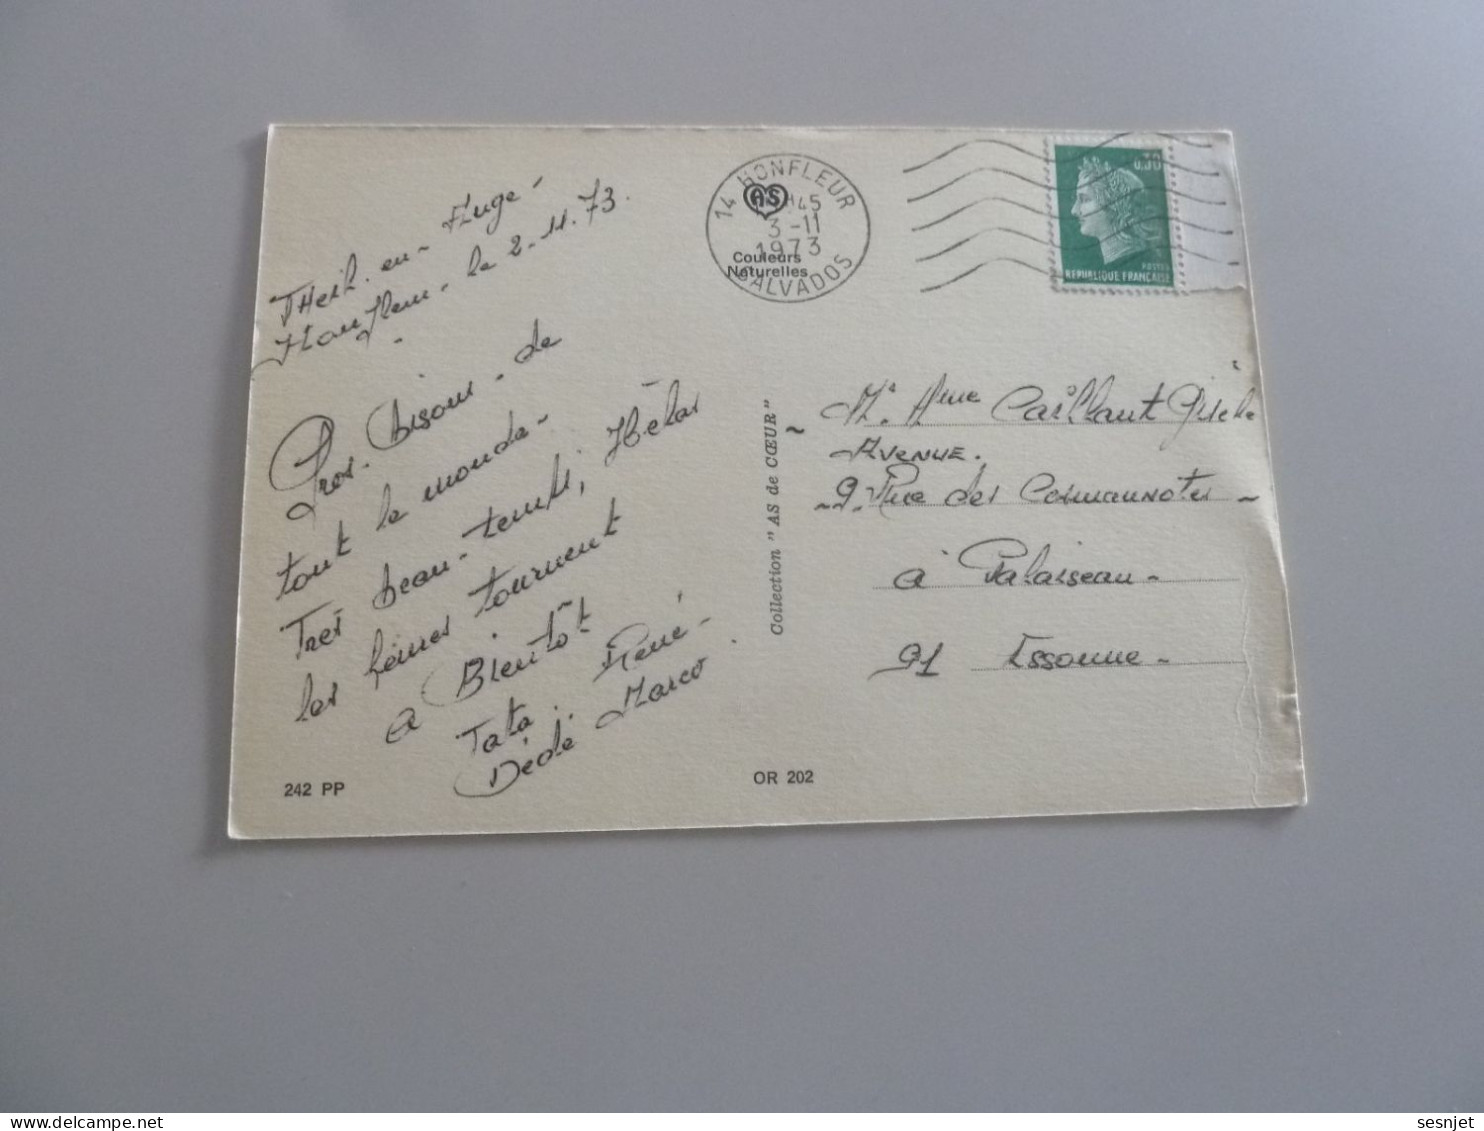 Theil. en - Auge -
Honfleur - le 2-11.73.
Gros. Bisous - de
tout le monde -
Tres beau-temps, Hélas
les heures tournent
a Bientôt
Tata. René -
Dédé. Marco
242 PP
OR 202
Collection "AS de CŒUR"
14 HONFLEUR
45
3-11
1973
CALVADOS
AS
Couleurs
Naturelles
0,30
POSTES
REPUBLIQUE FRANÇAISE
~ Mr. Mme Caillaut
AVENUE.
~ 9. Rue des ~
à Palaiseau -
91 Essonne -
sesnjet